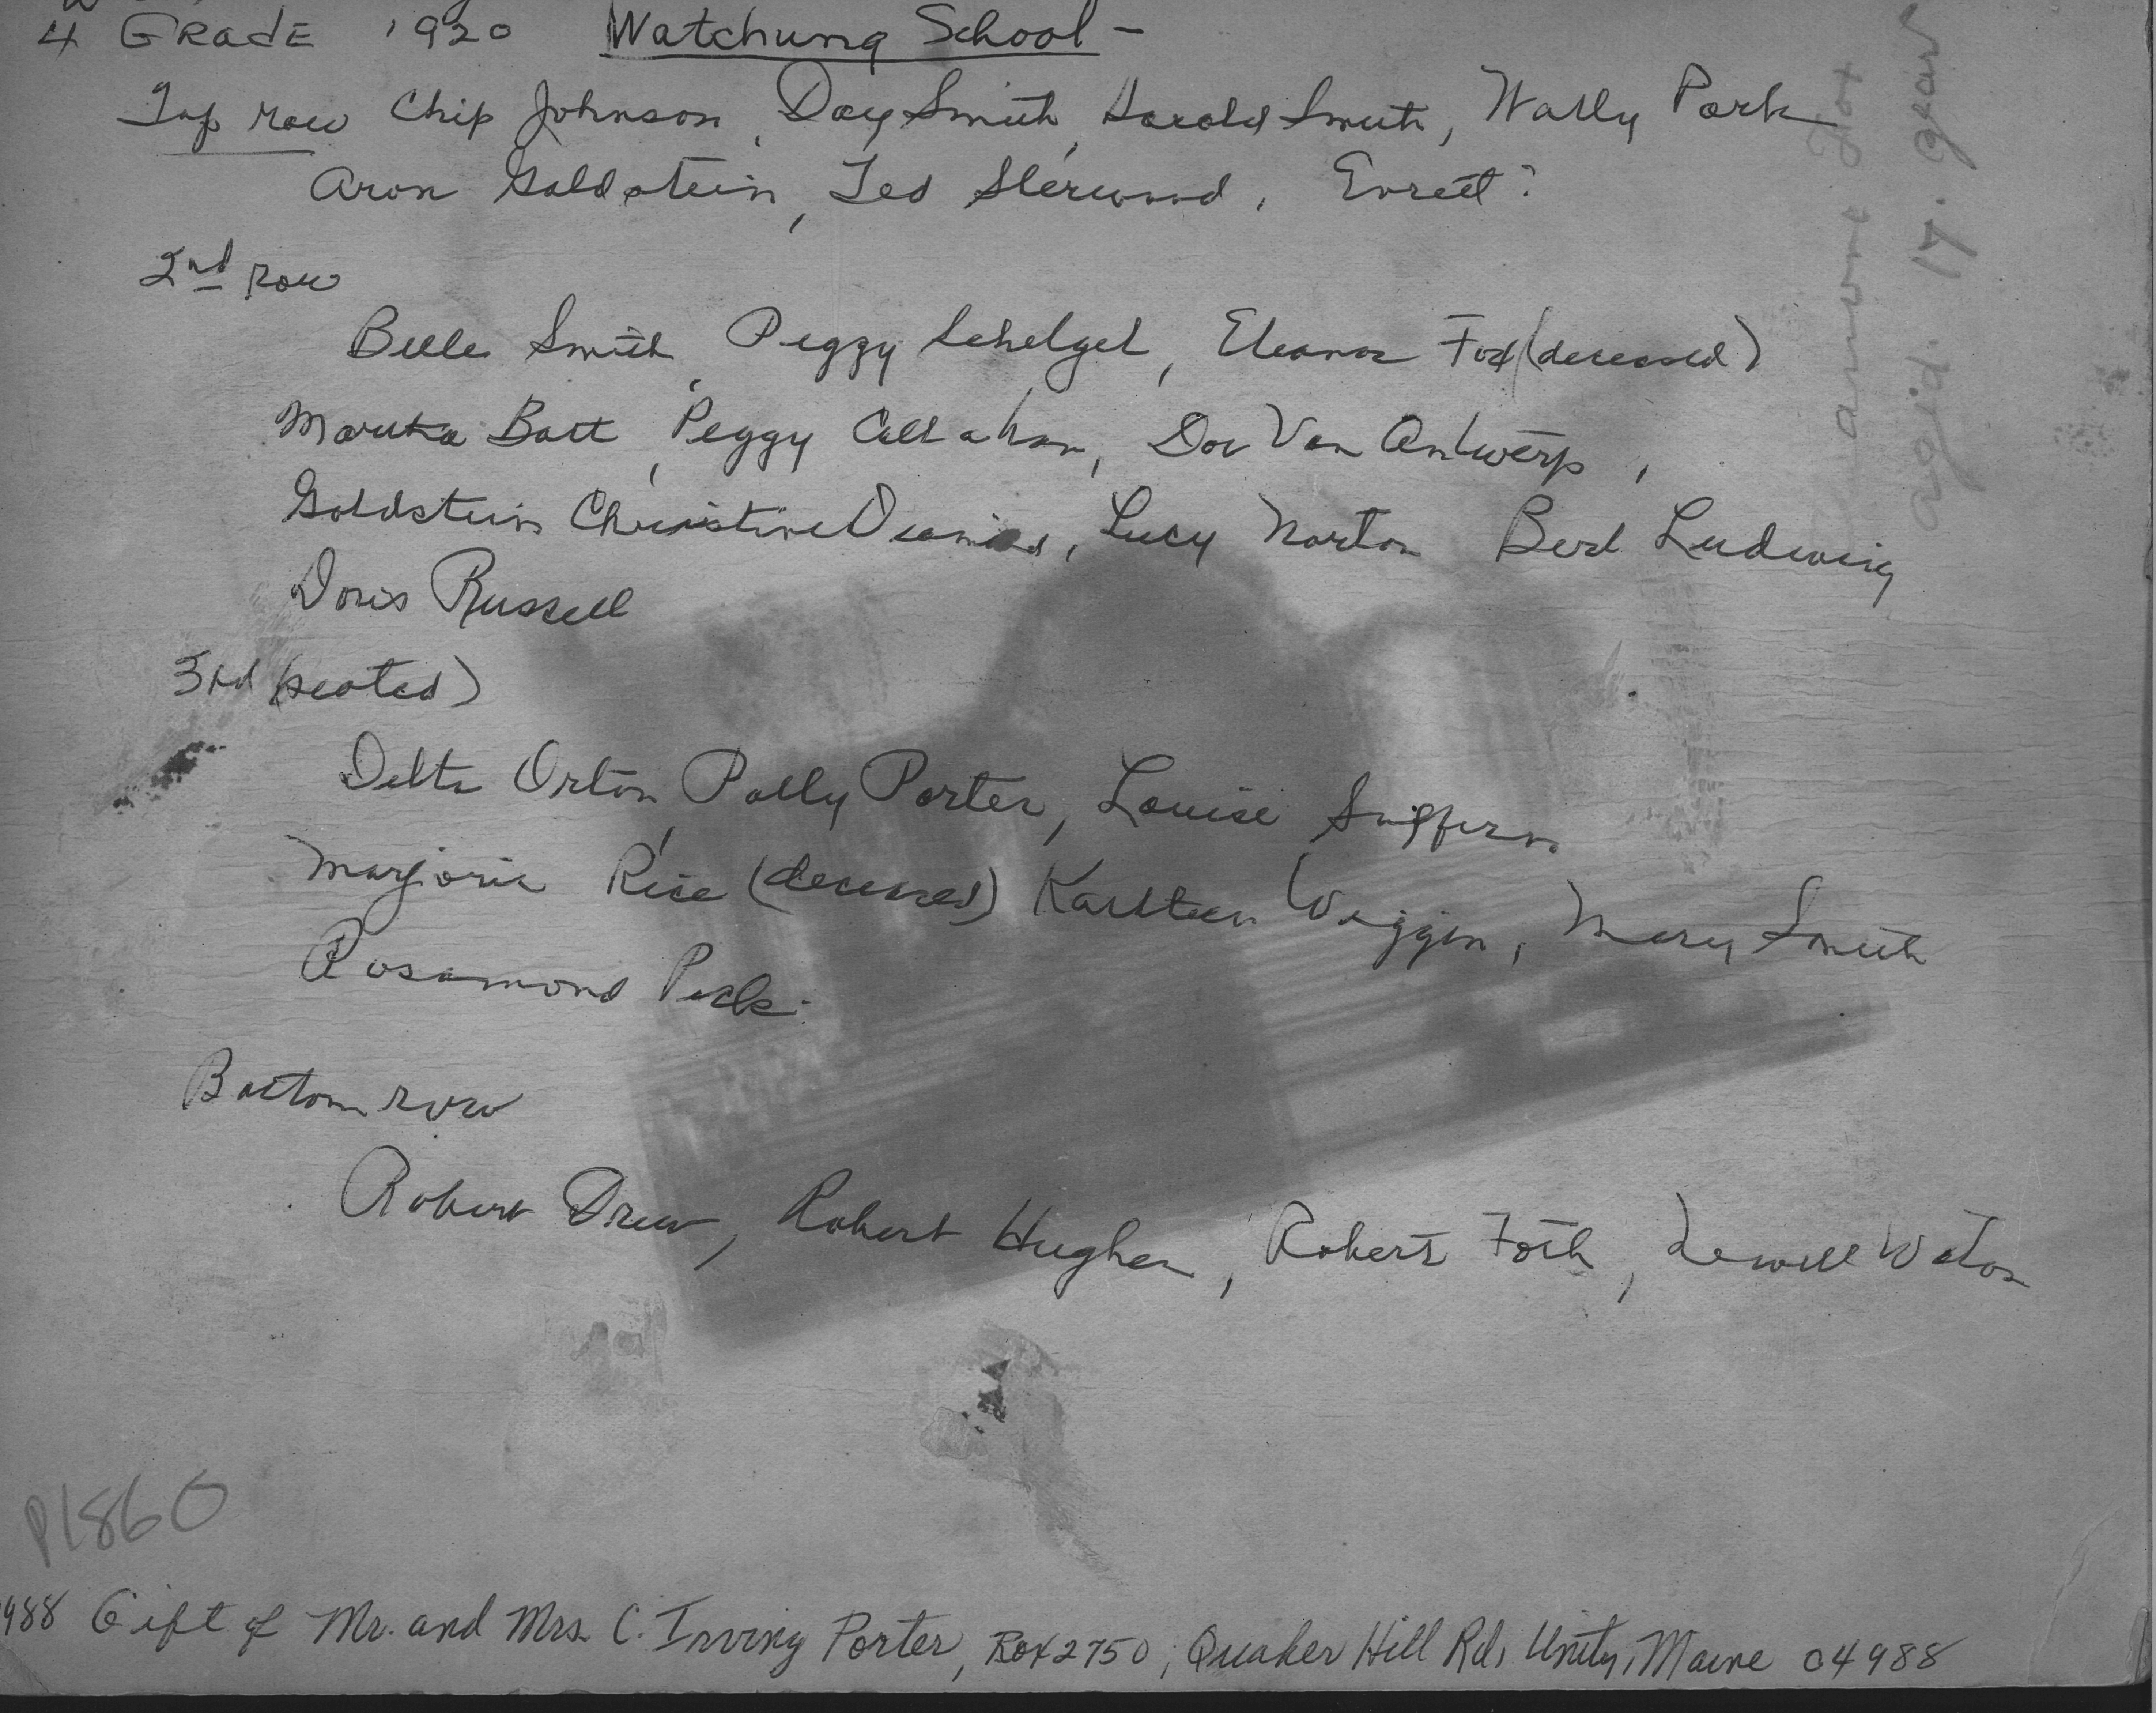 4 GRADE 1920 Watchung School -
Top row Chip Johnson, Doug Smith, Harold Smith, Wally Park
Aron Goldstein, Ted Sherwood, Evrett?
2nd row
Belle Smith, Peggy Schelgel, Eleanor Fox (deceased)
Martha Batt, Peggy Callahan, Dor Van Antwerp,
Goldstein Christine, Lucy Norton Berl Ludwig
Doris Russell
3rd (seated)
Delta Orton, Polly Porter, Louise Suffern
Marjorie Rice (deceased) Karlteen Wiggin, Mary Smith
Rosamond Peck
Bottom row
Robert Drew, Robert Hughes, Robert Foth, Lewell Waton
P1860
1988 Gift of Mr. and Mrs. C. Irving Porter, Box 2750, Quaker Hill Rd, Unity, Maine 04988
Fox
agid. 17. year